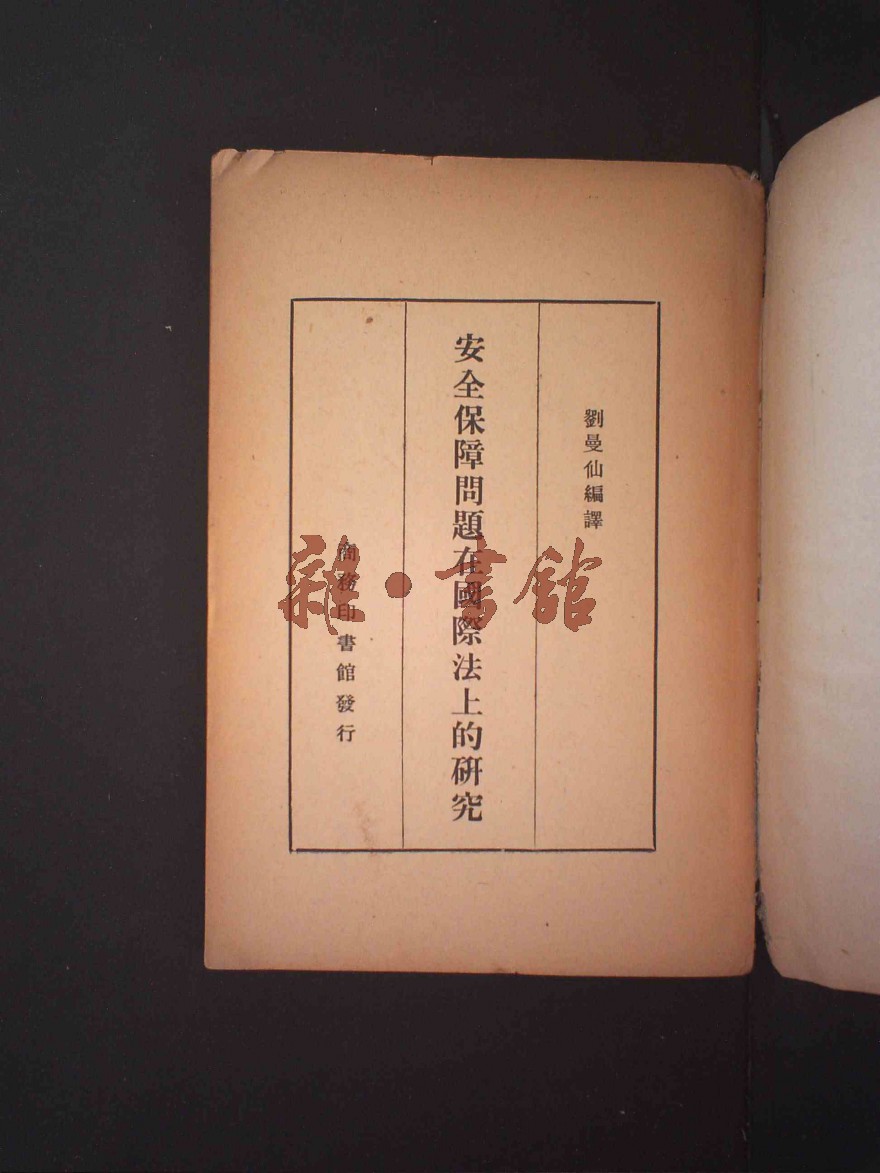 劉曼仙編譯
安全保障問題在國際法上的研究
商務印書館發行
雜·書館